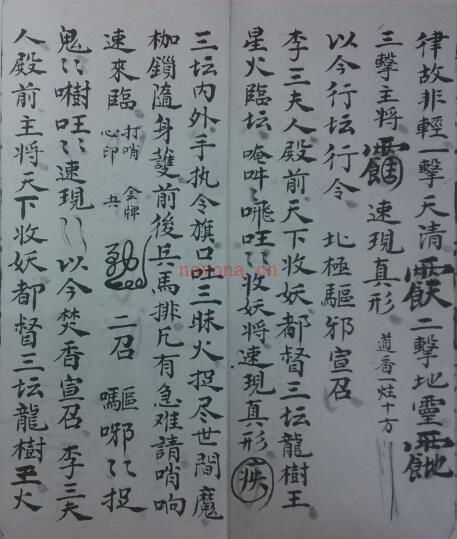 律故非輕一擊天清 二擊地靈
三擊主將 速現真形 道香一炷十方
以今行坛行令 北極驅邪宣召
李三夫人殿前天下收妖都督三坛龍樹王
星火臨坛唵吽𠺗吽〻收妖将速現真形
三坛内外手执令旗口吐三昧火捉尽世間魔
枷鎖隨身護前後兵馬排凡有急难請哨响
速來臨 打哨 金牌 心印 共 二召 驅邪〻捉
鬼〻 〻速現〻以今焚香宣召 李三夫
人殿前主将天下收妖都督三坛龍樹王火
nayona.cn